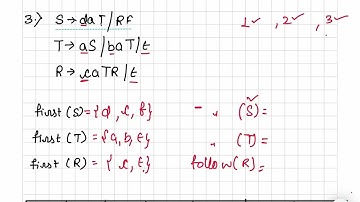 3.) S → daT / Rf 1✓ , 2✓ , 3✓
T → aS / baT / t
R → caTR / t
first (S) = {d, c, f} - " (S) =
first (T) = {a, b, ε} " (T) =
first (R) = { c, ε} follow(R) =